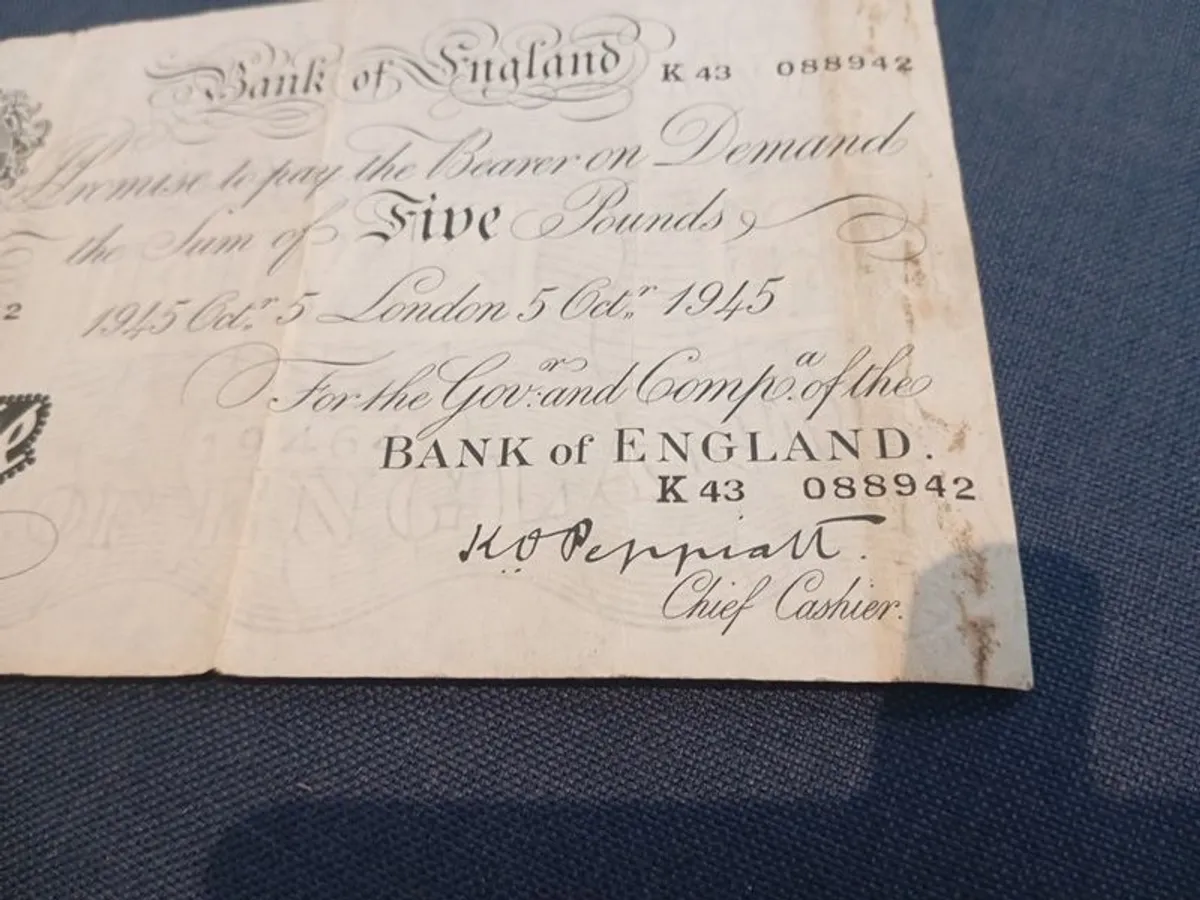 Bank of England K 43 088942
Promise to pay the Bearer on Demand
the Sum of Five Pounds
2 1945 Oct.r 5 London 5 Oct.r 1945
For the Gov.r and Comp.a of the
BANK of ENGLAND.
K 43 088942
K.O. Peppiatt.
Chief Cashier.